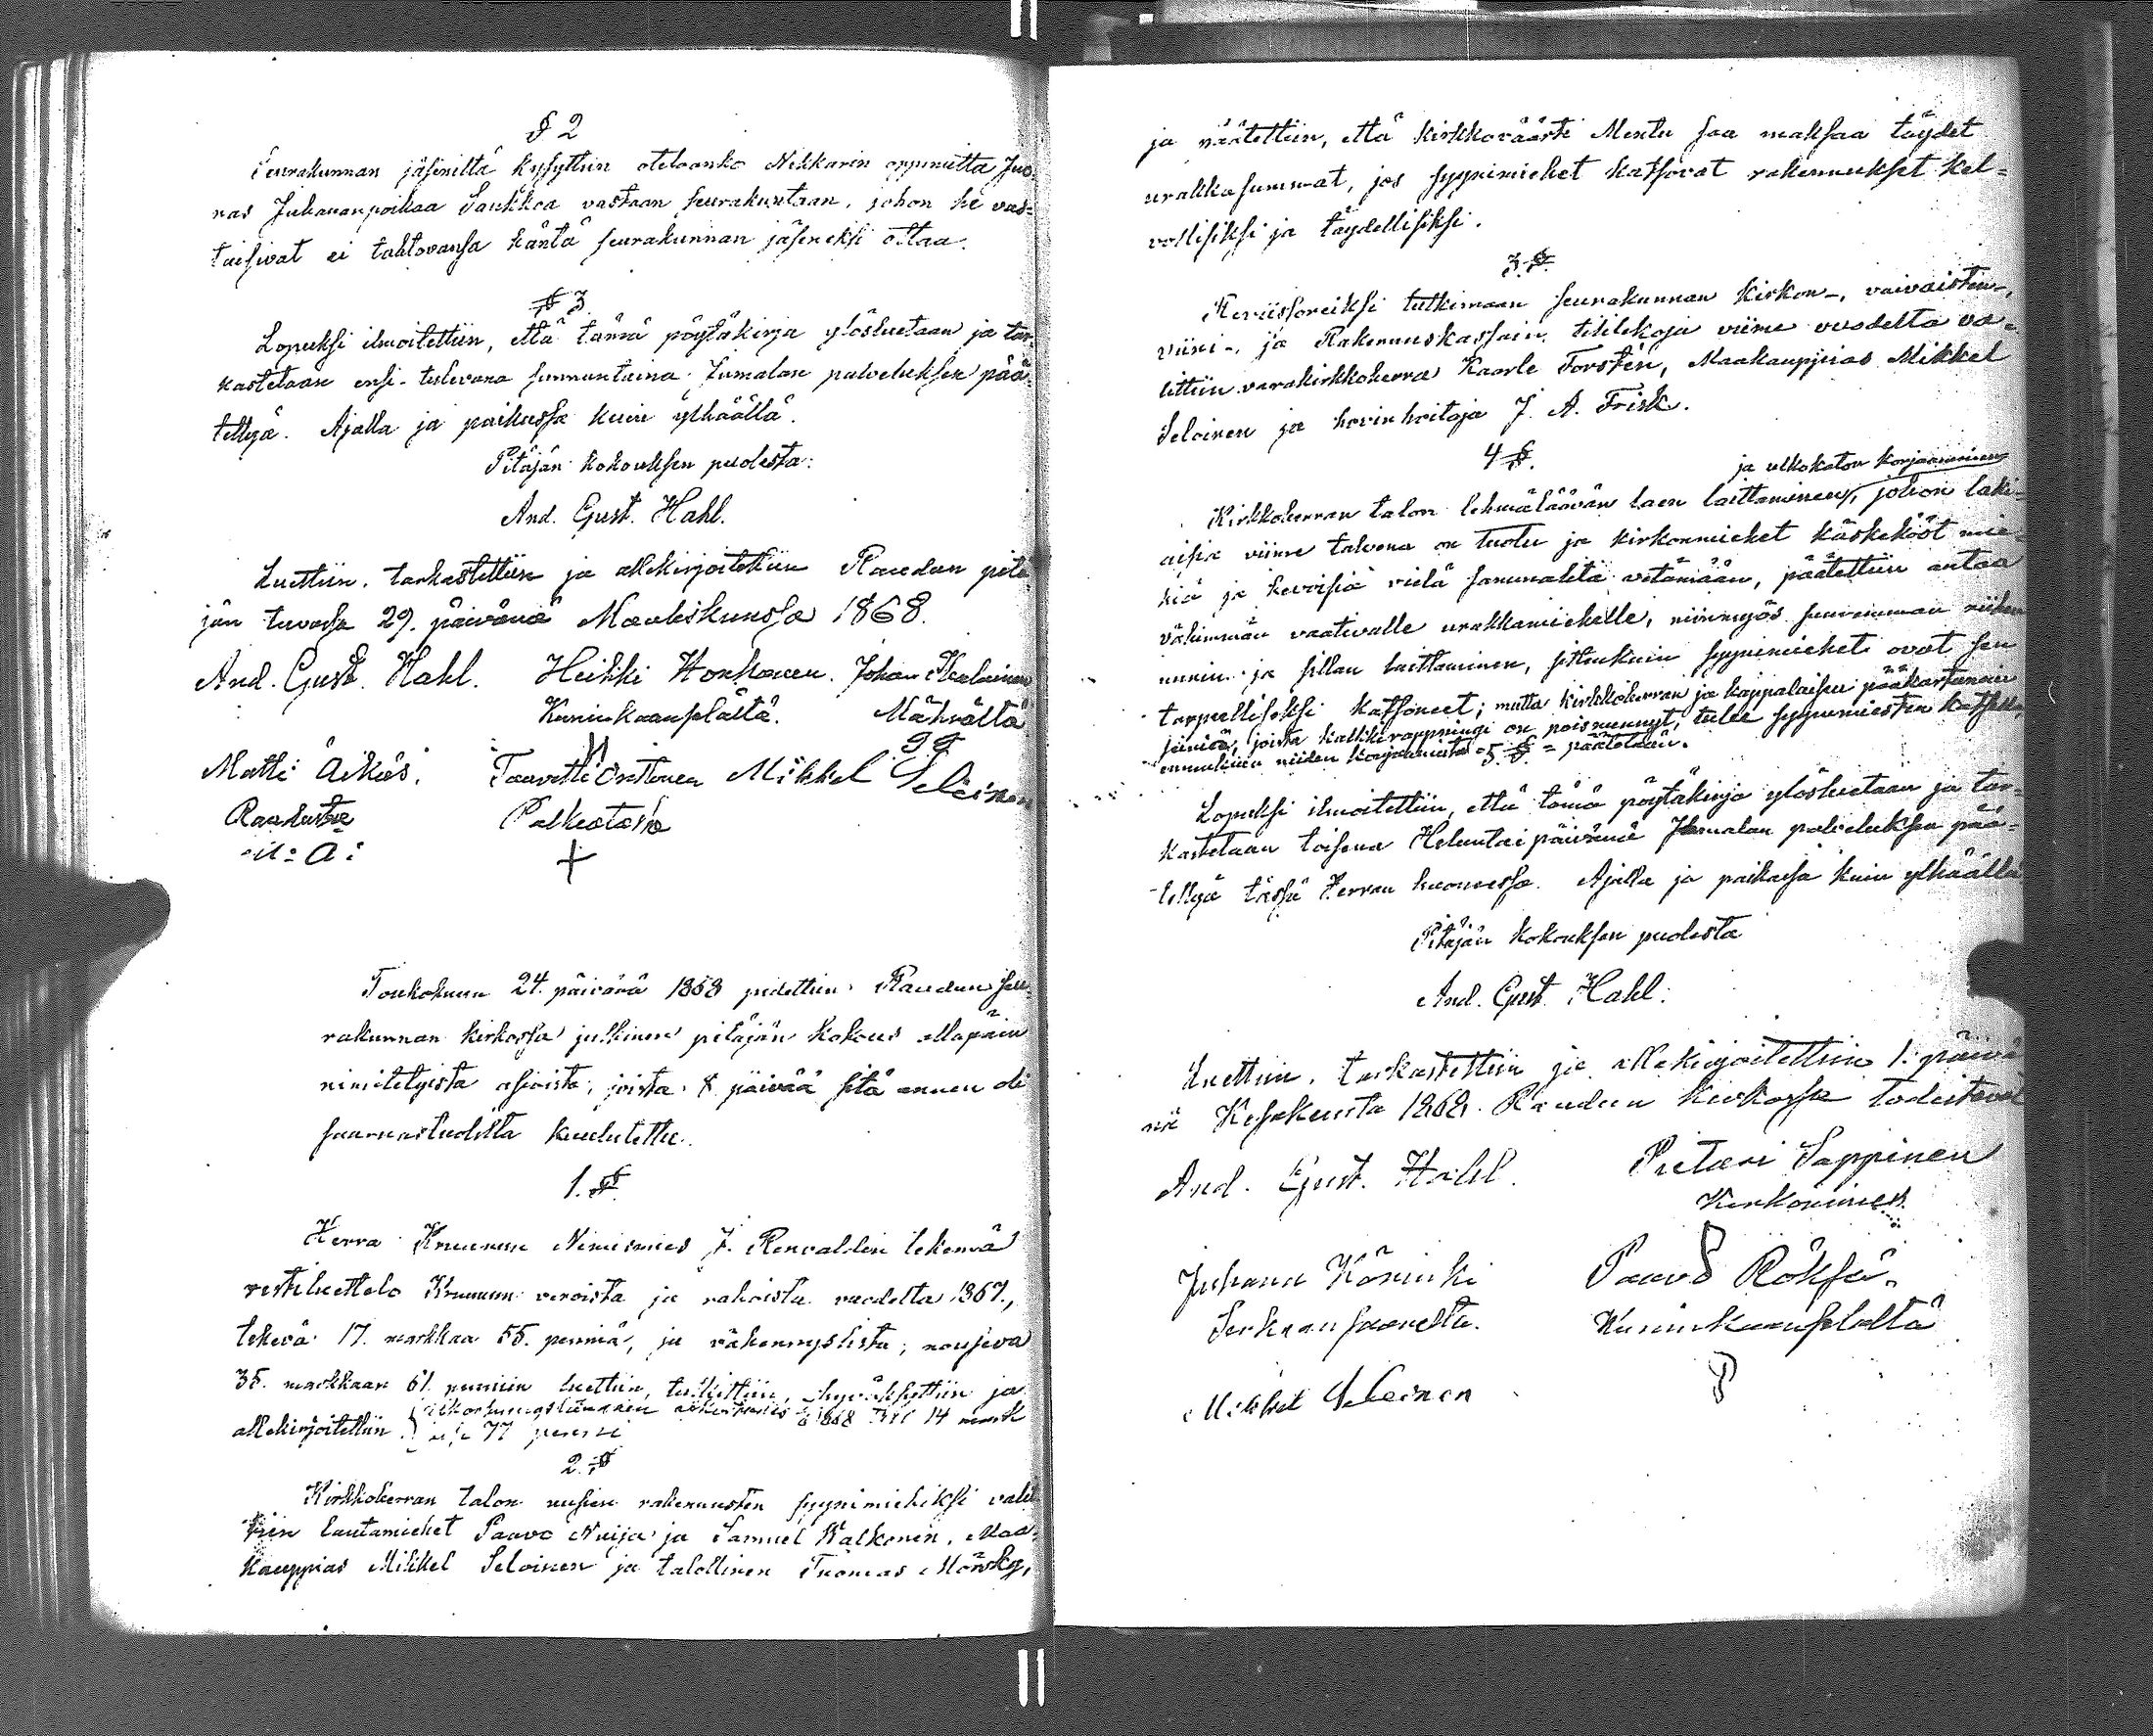 § 2
Seurakunnan jäseniltä kysyttiin otetaanko Nikkarin oppinutta Juo-
nas Juhananpoikaa Saukkoa vastaan seurakuntaan, johon he vas-
taisivat ei tahtovansa häntä seurakunnan jäseneksi ottaa.
§ 3
Lopuksi ilmoitettiin, että tämä pöytäkirja ylösluetaan ja tar-
kastetaan ensi-tulevana sunnuntaina Jumalan palveluksen pää-
tettyä. Ajalla ja paikassa kuin ylhäällä.
Pitäjän kokouksen puolesta:
And. Gust. Hahl.
Luettiin, tarkastettiin ja allekirjoitettiin Raudun pitä-
jän tuvassa 29. päivänä Maaliskuussa 1868.
And. Gust. Hahl. Heikki Honkanen. Johan
Kuninkaanselältä.
Matti Äikäs. Taavetti Mikkel Seloinen
Raudusta
+
Toukokuun 24. päivänä 1868 pidettiin Raudun seu-
rakunnan kirkossa julkinen pitäjän kokous allapäin
nimitetyistä asioista, joista 8 päivää sitä ennen oli
saarnastuolista kuulutettu.
1. §
Herra Kruunun Nimismies J. Renvaldin tekemä
restiluettelo Kruunun veroista ja rahoista vuodelta 1867,
tekevä 17. markkaa 55. penniä, ja vähennyslista, nouseva
35. markkaan 61. penniin luettiin, tutkittiin, hyväksyttiin ja
allekirjoitettiin 1868 14 mark
77 penni
2. §
Kirkkoherran talon uusien rakennusten syynimiehiksi valit-
tiin lautamiehet Paavo Nuija ja Samuel Walkonen, Maa-
kauppias Mikkel Seloinen ja talollinen Tuomas Mörsky,
ja päätettiin, että kirkkoväärti Mentu saa maksaa täydet
urakkasummat, jos syynimiehet katsovat rakennukset kel-
vollisiksi ja täydellisiksi.
3. §
Reviisoreiksi tutkimaan seurakunnan Kirkon-, vaivaisten-,
viini-, ja Rakennuskassain tililekoja viime vuodelta va-
littiin varakirkkoherra Kaarle Forstén, Maakauppias Mikkel
Seloinen ja hovinhoitaja J. A. Frisk.
4 §.
ja ulkokaton korjaaminen
Kirkkoherran talon lehmäläävän laen laittaminen, johon laki-
aisia viime talvena on tuotu ja kirkonmiehet käskekööt mie-
hiä ja hevosia vielä sammalta vetämään, päätettiin antaa
vähimmän vaativalle urakkamiehelle, niinmyös suurimman riihen
uunin ja sillan laittaminen, sittenkuin syynimiehet ovat sen
tarpeelliseksi katsoneet; mutta kirkkoherran ja kappalaisen pääkartanoin
seiniä, joista kalkkirappningi on poismennyt, tulee syynimiesten katsella,
ennenkuin niiden korjaamista 5 § = päätetään.
Lopuksi ilmoitettiin, että tämä pöytäkirja ylösluetaan ja tar-
kastetaan toisena Heluntaipäivänä Jumalan palveluksen pää-
tettyä tässä Herran huoneessa. Ajalla ja paikassa kuin ylhäällä
Pitäjän kokouksen puolesta
And. Gust. Hahl.
Luettiin, tarkastettiin ja allekirjoitettiin 1. päivä-
nä Kesäkuuta 1868. Raudun kirkossa todistavat
And. Gust. Hahl. Pietari Sappinen
Kirkonmies.
Juhana Köninki Paavo Röksä.
Kuninkaanselältä
Mikkel Seloinen